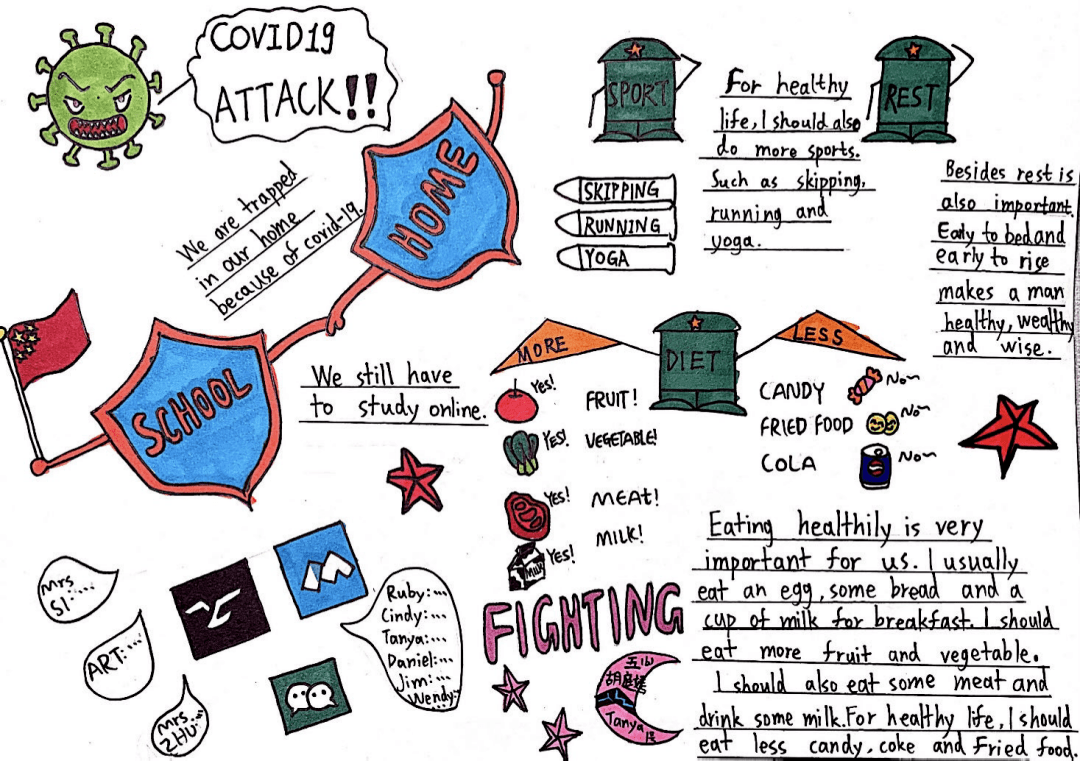 COVID19
ATTACK!!
HOME
We are trapped
in our home
because of covid-19.
SCHOOL
We still have
to study online.
SPORT
SKIPPING
RUNNING
YOGA
For healthy
life, I should also
do more sports.
Such as skipping,
running and
yoga.
REST
Besides rest is
also important.
Early to bed and
early to rise
makes a man
healthy, wealthy
and wise.
DIET
MORE
Yes! FRUIT!
YES! VEGETABLE!
YES! MEAT!
YES! MILK!
MILK
LESS
CANDY No~
FRIED FOOD No~
COLA No~
Mrs
SI:....
ART:....
Mrs
ZHU:...
Ruby:...
Cindy:...
Tanya:...
Daniel:...
Jim:...
Wendy:
FIGHTING
Tanya
Eating healthily is very
important for us. I usually
eat an egg, some bread and a
cup of milk for breakfast. I should
eat more fruit and vegetable.
I should also eat some meat and
drink some milk. For healthy life, I should
eat less candy, coke and Fried food.